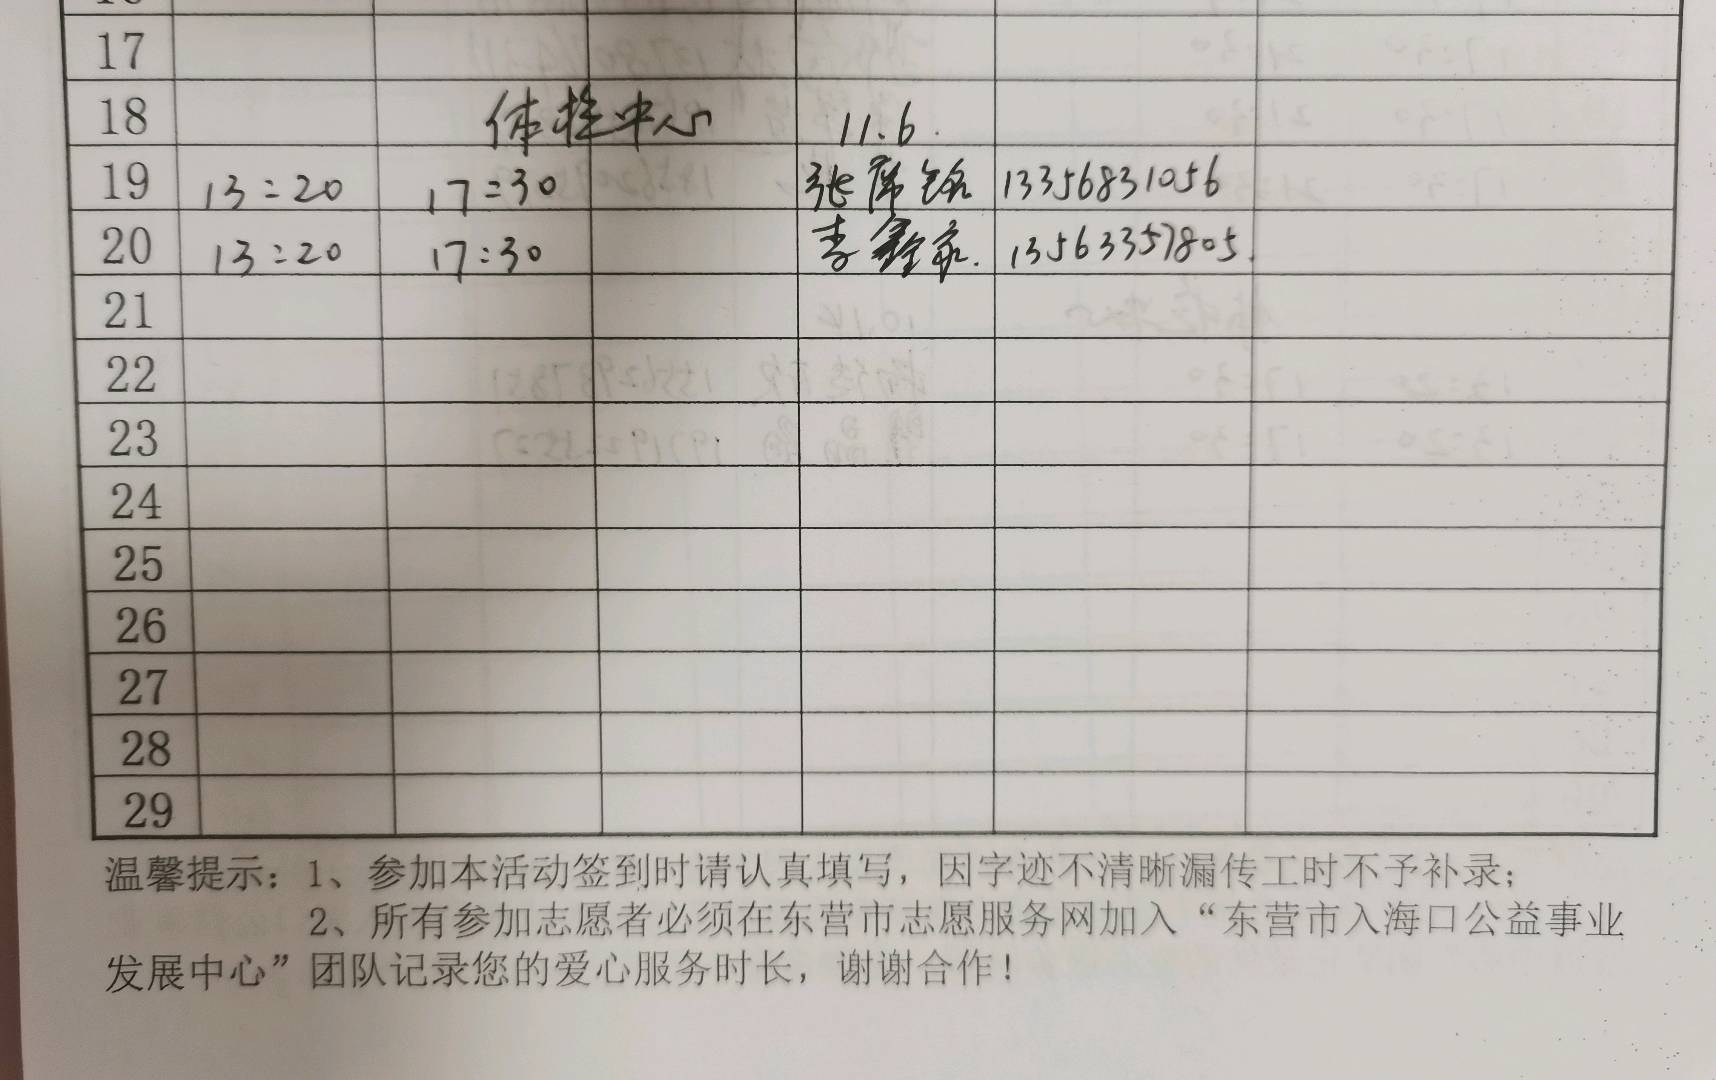 17
18 体检中心 11.6.
19 13:20 17:30 张席铭 13356831056
20 13:20 17:30 李鑫家. 13563357805.
21
22
23
24
25
26
27
28
29
温馨提示：1、参加本活动签到时请认真填写，因字迹不清晰漏传工时不予补录；
2、所有参加志愿者必须在东营市志愿服务网加入“东营市入海口公益事业
发展中心”团队记录您的爱心服务时长，谢谢合作！